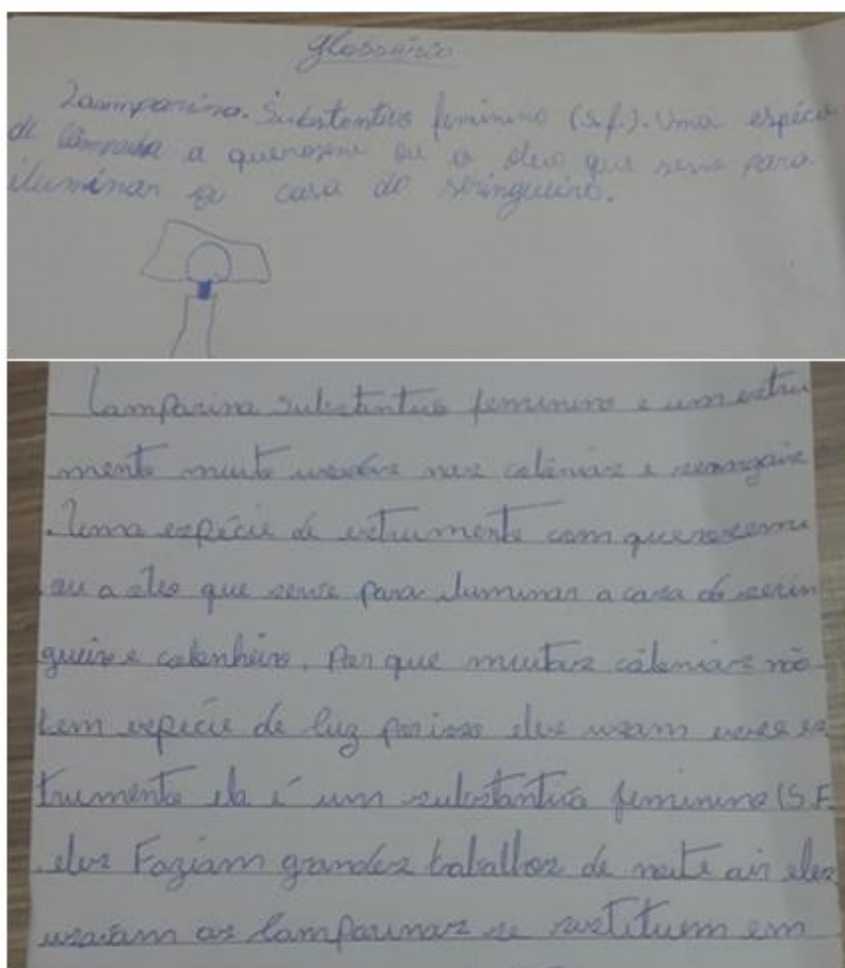 Glossário
Lamparina. Substantivo feminino (s.f.). Uma espécie
de lâmpada a querosene ou a óleo que serve para
iluminar a casa do seringueiro.
Lamparina substantivo feminino e um estru
mento muito usados nas colônias e
. Uma espécie de estrumento com querosemi
ou a óleo que serve para iluminar a casa do serin
gueiro e colonheiro. Por que muitas colônias não
tem espécie de luz por isso eles usam esses es
trumento ela é um substantivo feminino (S.F.
eles Faziam grandes trabalhos de noite eles
usavam as lamparinas se em